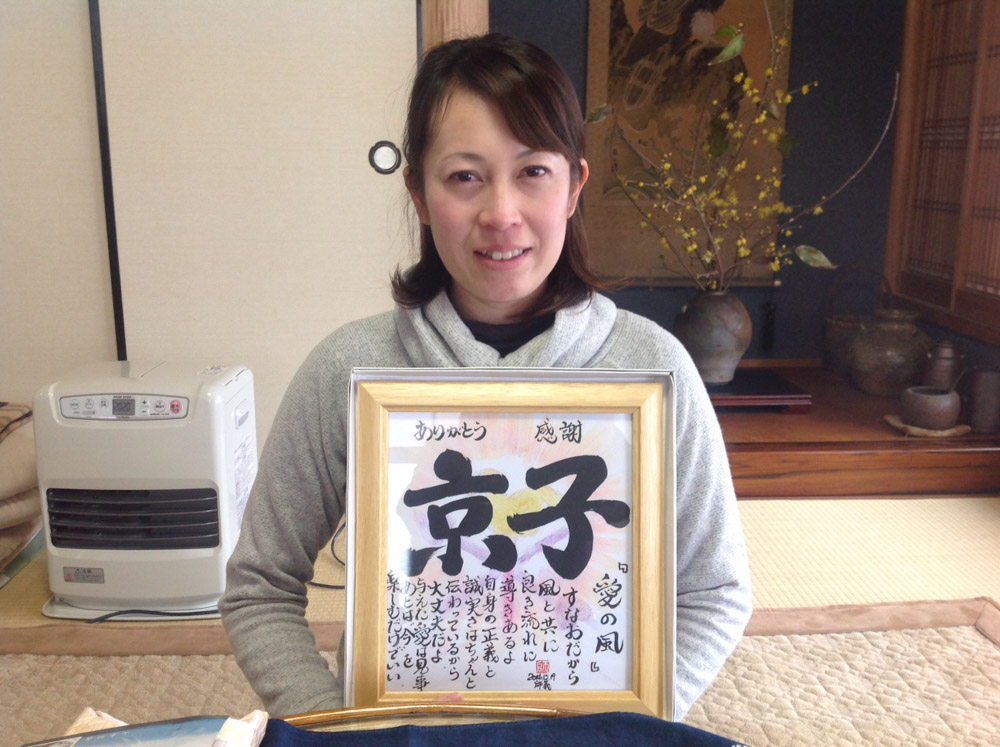 ありがとう 感謝
京子
『愛の風』
すなおだから
風と共に
良き流れに
導きあるよ
自身の正義と
誠実さはちゃんと
伝わっているから
大丈夫だよ
与えた愛は見事
あとは今を
楽しむだけでいい